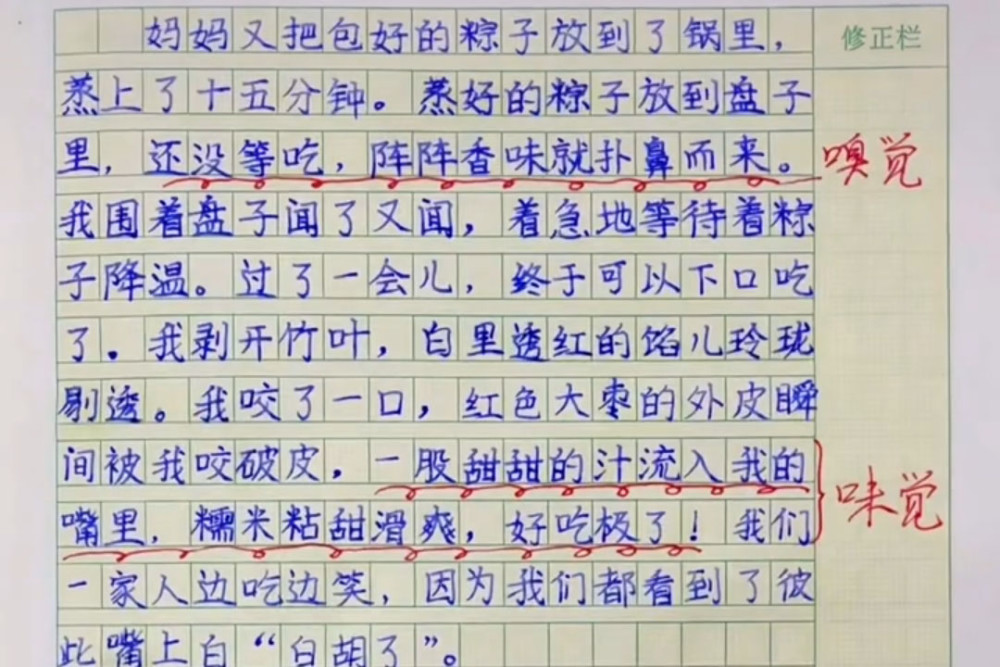 妈妈又把包好的粽子放到了锅里，
修正栏
蒸上了十五分钟。蒸好的粽子放到盘子
里，还没等吃，阵阵香味就扑鼻而来。
嗅觉
我围着盘子闻了又闻，着急地等待着粽
子降温。过了一会儿，终于可以下口吃
了。我剥开竹叶，白里透红的馅儿玲珑
剔透。我咬了一口，红色大枣的外皮瞬
间被我咬破皮，一股甜甜的汁流入我的
嘴里，糯米粘甜滑爽，好吃极了！我们
味觉
一家人边吃边笑，因为我们都看到了彼
此嘴上白“白胡了”。